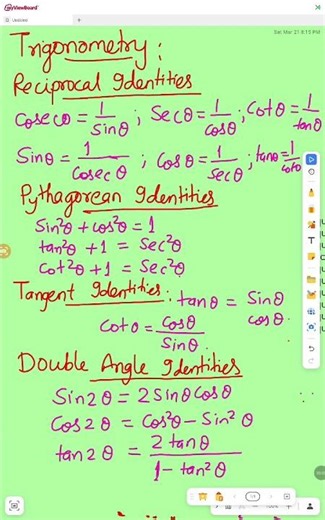 myViewBoard
Sat Mar 21 8:15 PM
Trigonometry :
Reciprocal Identities
Cosecθ = 1/Sinθ ; Secθ = 1/Cosθ ; Cotθ = 1/tanθ
Sinθ = 1/Cosecθ ; Cosθ = 1/Secθ ; tanθ = 1/Cotθ
Pythagorean Identities
Sin²θ + Cos²θ = 1
tan²θ + 1 = Sec²θ
Cot²θ + 1 = Sec²θ
Tangent Identities : tanθ = Sinθ/Cosθ
Cotθ = Cosθ/Sinθ.
Double Angle Identities
Sin2θ = 2Sinθ Cosθ
Cos2θ = Cos²θ – Sin²θ
tan2θ = 2tanθ/1 – tan²θ